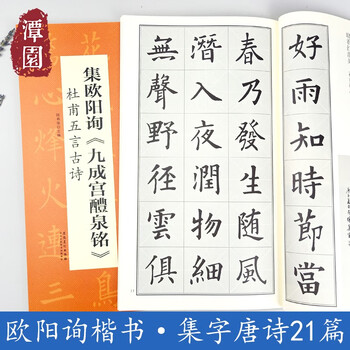 潭園
集欧阳询《九成宫醴泉铭》
杜甫五言古诗
心烽火連三
好雨知時節當
春乃發生随風
潛入夜潤物細
無聲野徑雲俱
欧阳询楷书·集字唐诗21篇